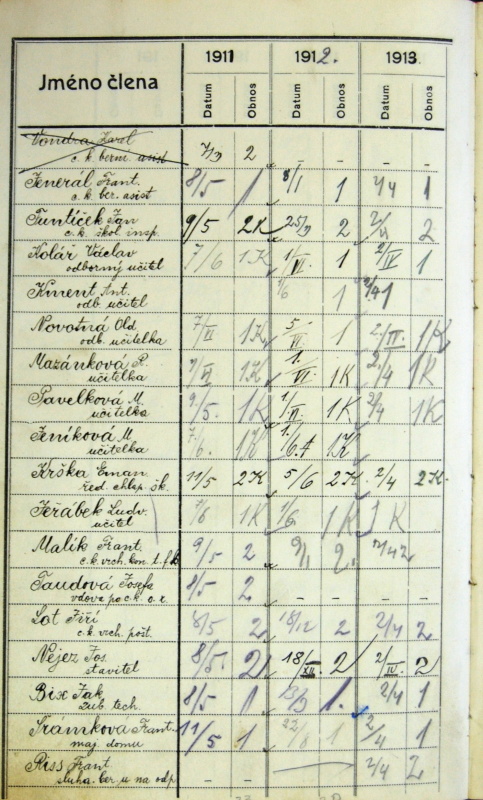 Jméno člena 1911 1912. 1913
Datum Obnos Datum Obnos Datum Obnos
Vondra Karel
c. k. bern. asist 7/9 2 – – – –
Jenerál Frant. 8/5 1 8/1 1 2/4 1
c. k. ber. asist
Funtíček Jan 9/5 2K 25/9 2 2
c. k. škol. insp.
Kolář Václav 7/6 1K 1/VI. 1 2/IV 1
odborný učitel
Kment Ant. 1 1
odb. učitel
Novotná Old. 7/VI 1K 5/VI 1 2/IV. 1K
odb. učitelka
Mazánková P. 1K 1/VI. 1K 2/4 1K
učitelka
Pavelková M. 9/5. 1K 1K 2/4 1K
učitelka
Jeníková M. 7/6. 1K 1K
učitelka
Krška Eman 11/5 2K 5/6 2K 2/4 2K.
řed. chlap. šk.
Jeřábek Ludv. 7/6 1K 1/6 1K 1K
učitel
Malík Frant. 9/5 2 2. 2/4 2
c. k. vrch. kon. t. f. k.
Taudová Josefa 8/5 2 – – – –
vdova po c. k. o. r.
Lot Jiří 8/5 2 18/12 2 2/4 2
c. k. vrch. pošt.
Nejez Jos. 8/5. 2 18/XII. 2 2/IV. 2
stavitel
Bix Jak. 8/5 1 1. 2/4 1
zub. tech.
Šrámková Frant. 11/5 1 1 2/4 1
maj. domu
Riss Frant – – 2/4 2
sluha ber. ú. na odp.